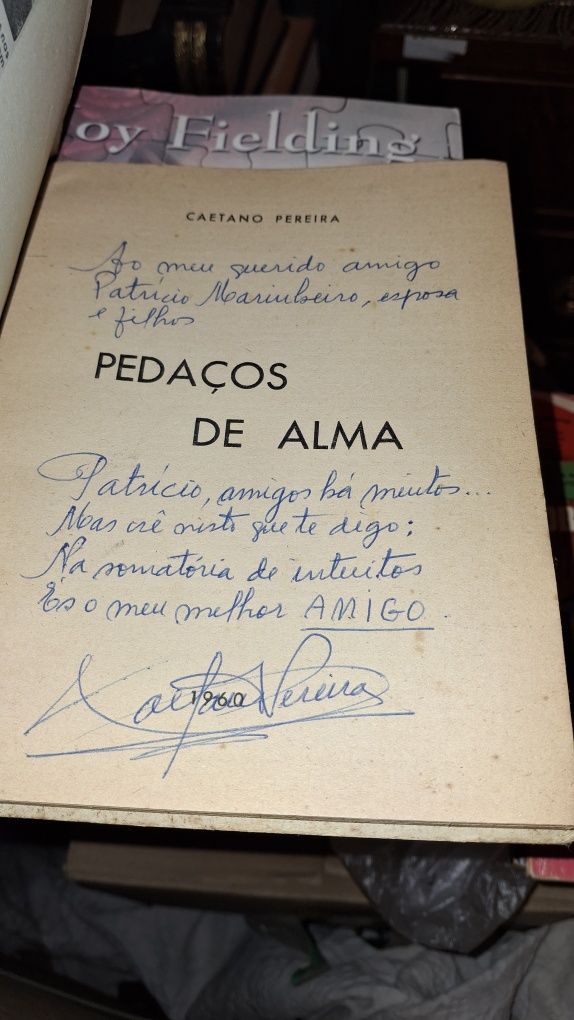 oy Fielding
CAETANO PEREIRA
Ao meu querido amigo
Patrício Marinheiro, esposa
e filhos
PEDAÇOS
DE ALMA
Patrício, amigos há muitos...
Mas crê nisto que te digo:
Na somatória de intuitos
És o meu melhor AMIGO.
Caetano Pereira
1960